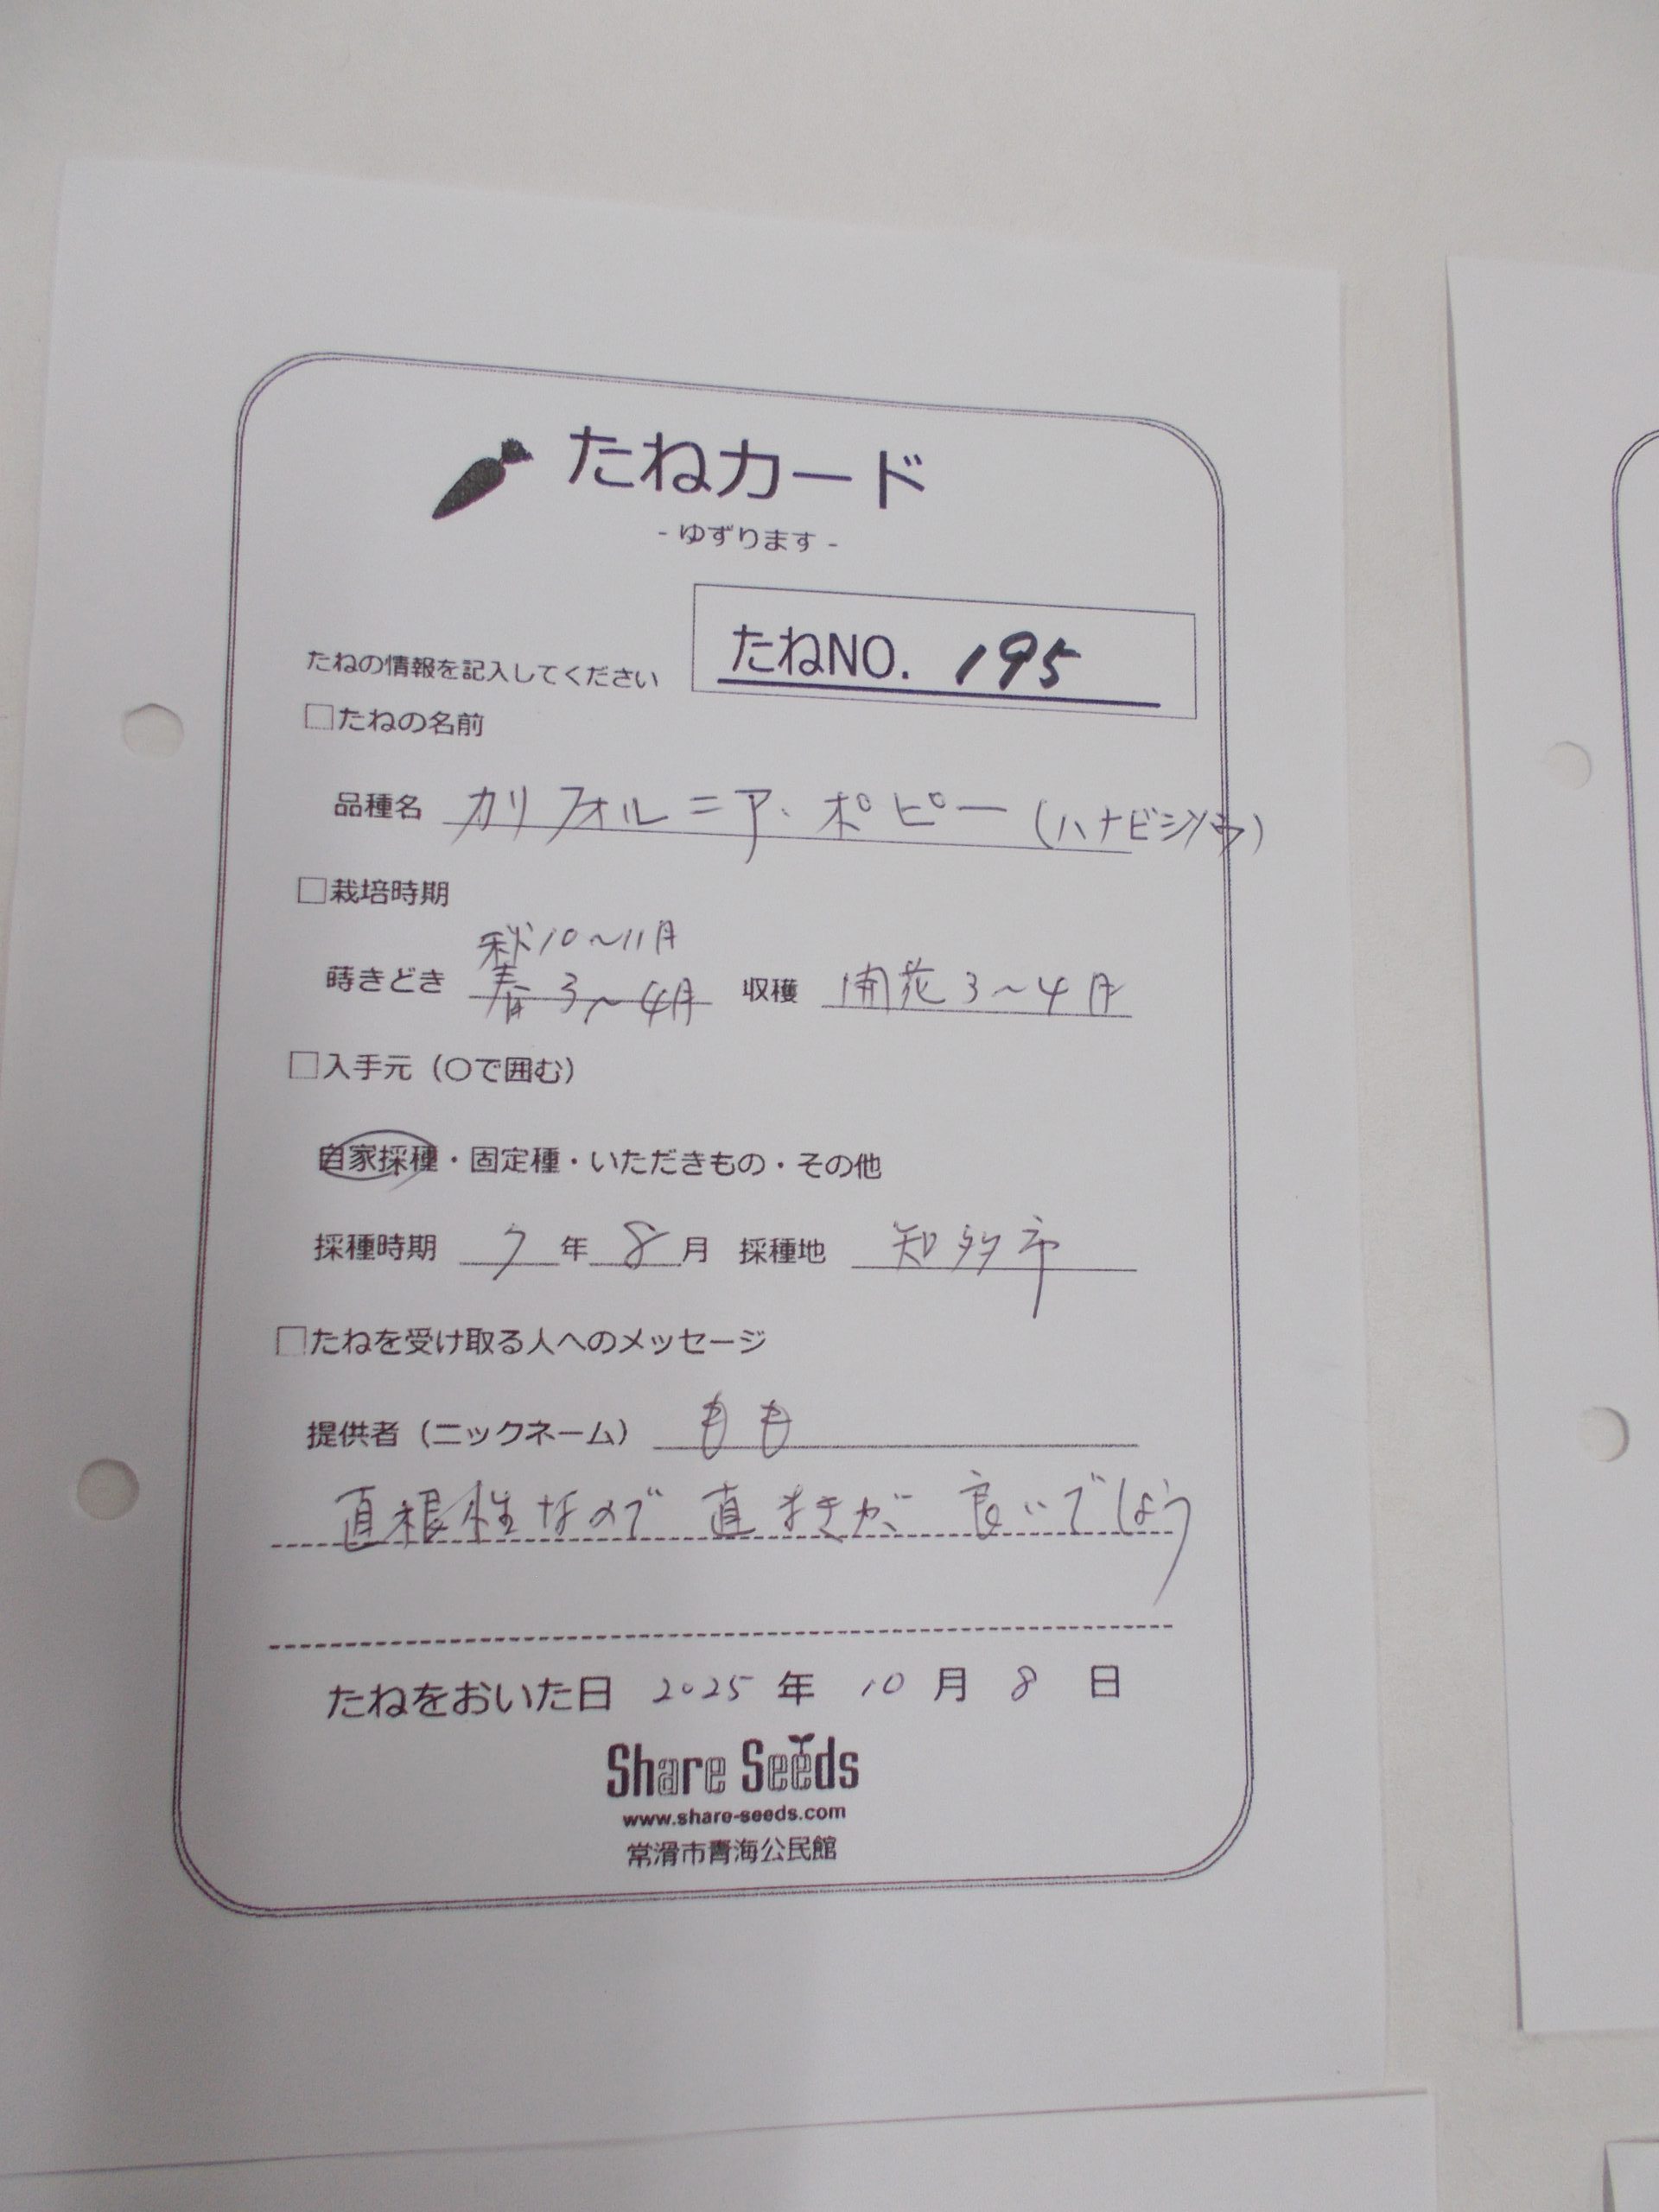 たねカード
- ゆずります -
たねNO. 195
たねの情報を記入してください
□たねの名前
品種名 カリフォルニア・ポピー (ハナビシソウ)
□栽培時期
秋10~11月
蒔きどき 春3~4月 収穫 開花3~4月
□入手元(〇で囲む)
自家採種・固定種・いただきもの・その他
採種時期 7年8月 採種地 知多市
□たねを受け取る人へのメッセージ
提供者(ニックネーム) もも
直根性なので直まきが良いでしょう
たねをおいた日 2025年10月8日
Share Seeds
www.share-seeds.com
常滑市青海公民館